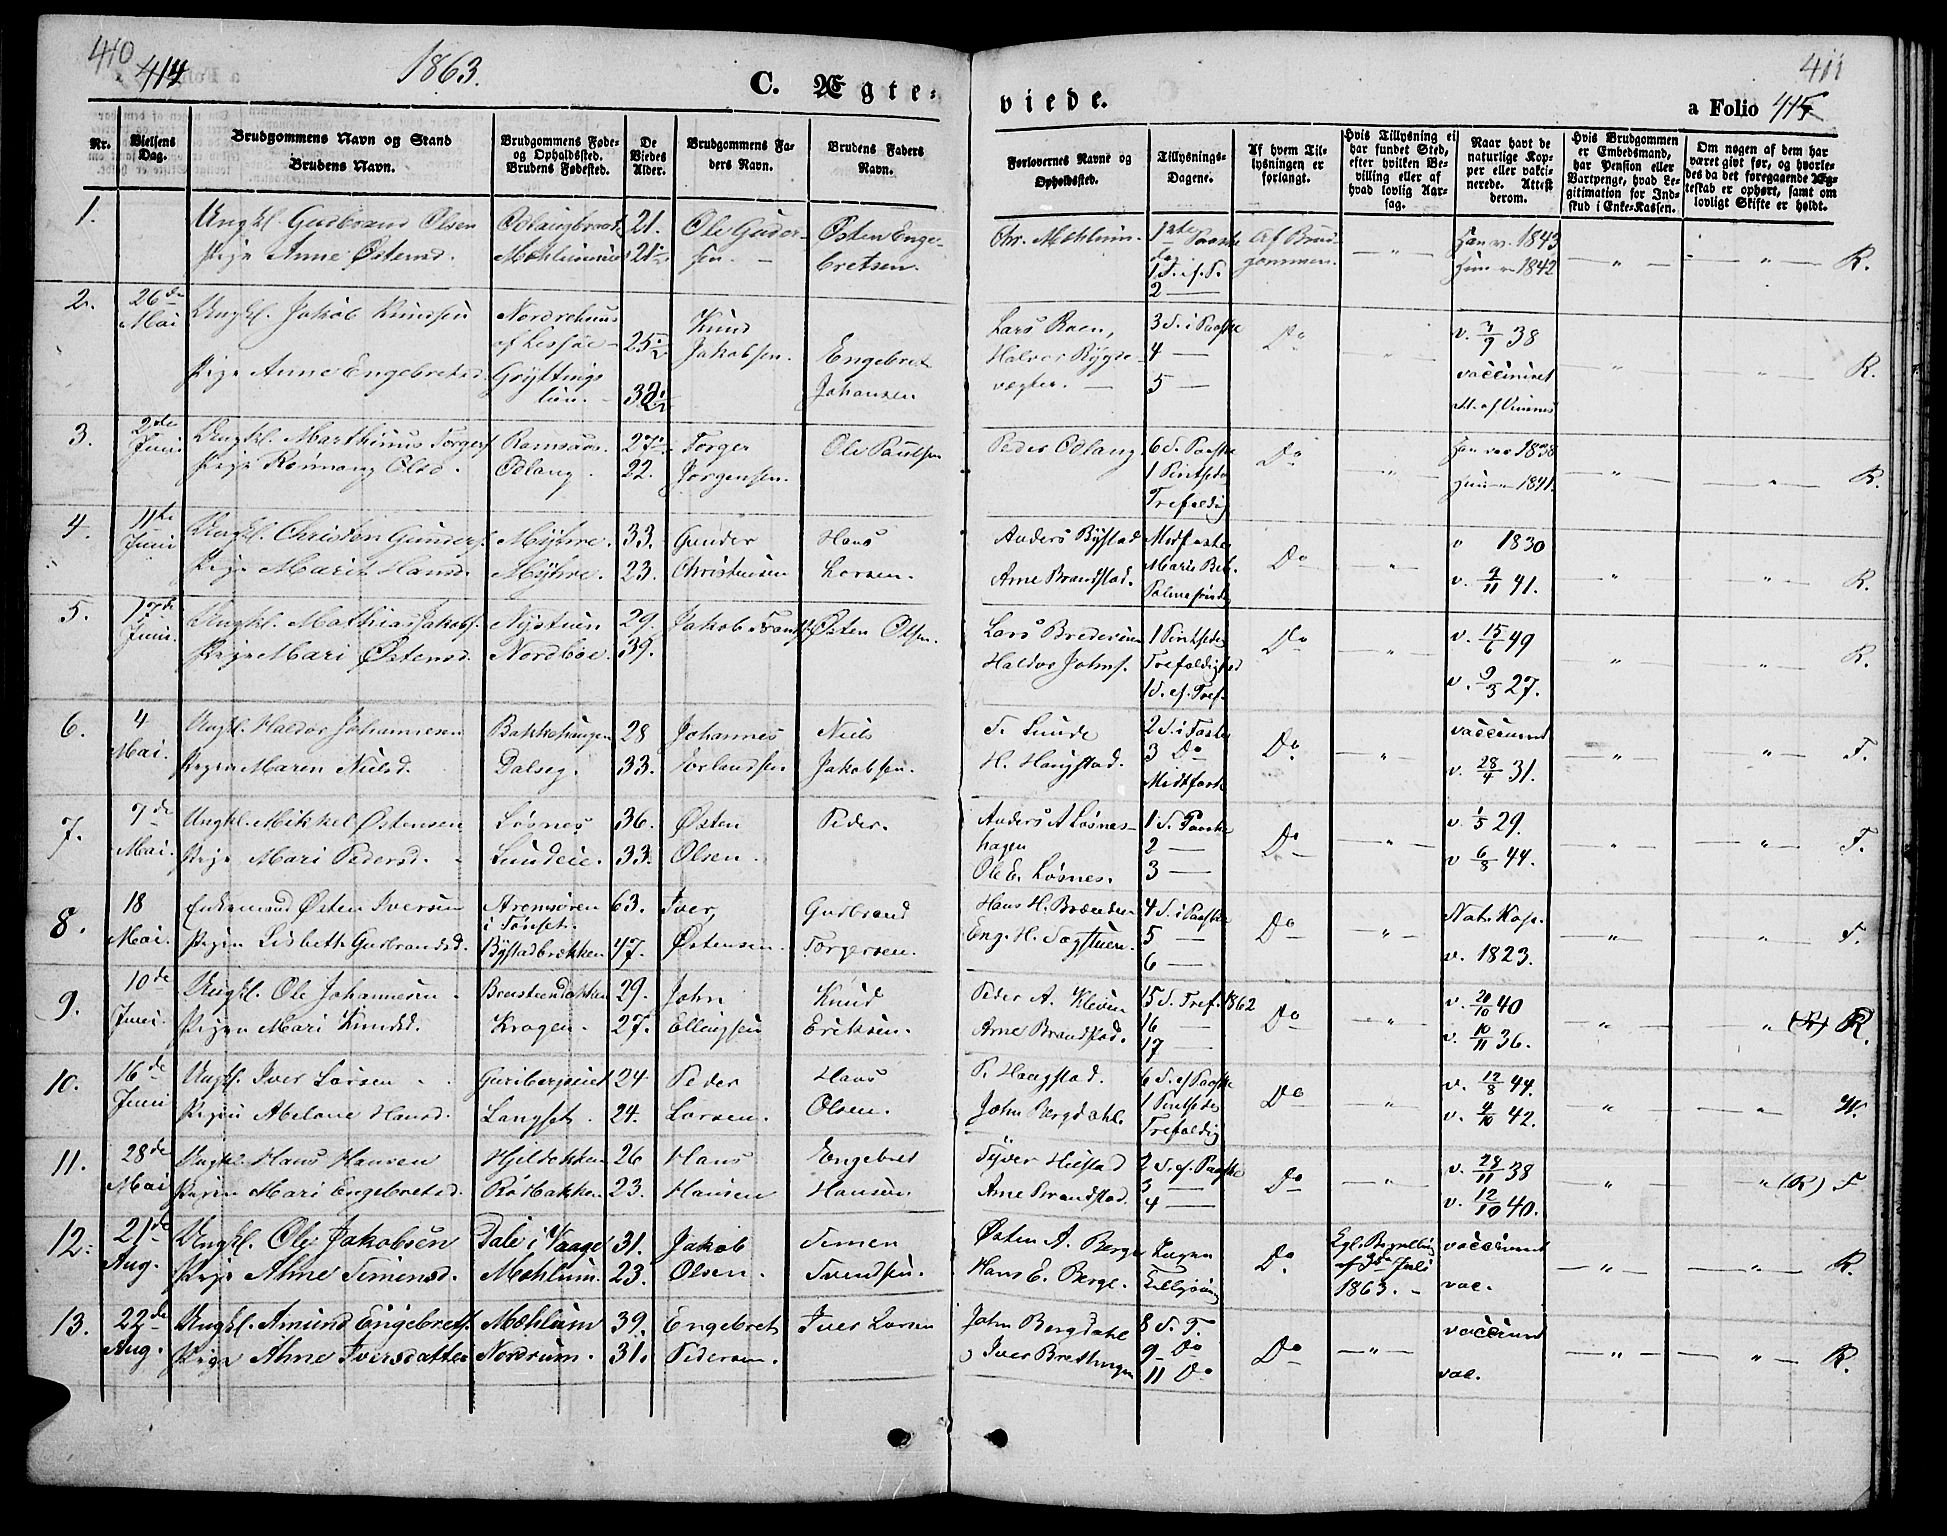 410
414
1863.
C. Ægte-
viede.
411
a Folio 415
Nr.
Vielsens Dag.
Brudgommens Navn og Stand
Brudens Navn.
Brudgommens Føde- og Opholdssted. Brudens Fødested.
De Viedes Alder.
Brudgommens Faders Navn.
Brudens Faders Navn.
Forlovernes Navne og Opholdssted.
Tillysnings-Dagene.
Af hvem Tillysningen er forlangt.
Hvis Tillysning ei har fundet Sted, efter hvilken Bevilling eller af hvad lovlig Aarsag.
Naar havt de naturlige Kopper eller vaccinerede. Attest derom.
Hvis Brudgommen er Embedsmand, har Pension eller Vartpenge, hvad Legitimation for Indskud i Enke-Kassen.
Om nogen af dem har været gift før, og hvorledes da det foregaaende Ægteskab er ophørt, samt om lovligt Skifte er holdt.
1. Ungkl. Gudbrand Olsen 21. Ole Guder- Østen Enge- Chr. Mæhlum. 1ste Paaske Af Brud- Han v. 1843
Pige Anne Østensd. 21 sen. bretsen. dag gommen. Hun v. 1842 R.
1 S. e. P.
2 —
2. 26de Ungkl. Jakob Knudsen Nordrehuus Knud Lars Roen, 3 S. i Paaske Do v. 38
Mai af Lessøe 25 Jakobsen. Engebret 4 — vaccineret
Pige Anne Engebretsd. 30 Johansen 5 — R.
3. 2de Ungkl. Marthinus Torgers. Ramsøen 27 Torger Ole Paulsen Peder Odlang 6 S. Paaske Do Han vac 1838
Juni Pige Rønnaug Olsd. Odlang. 22. Jørgensen. 1 Pintsedag Hun v. 1841. R.
Trefoldig
4. 11te Ungkl. Christen Gunders. Myhre. 33. Gunder Hans Anders Bystad Midfaste Do v 1830
Juni Pige Marit Hansd. Myhre. 23. Christensen Larsen. Arne Brandstad. Mariæ Beb. v. 9/11 41. R.
Palmesøndag
5. 17de Ungkl. Mathias Jakobs. Nystuen 29. Jakob Østen Olsen. Lars 1 Pintsedag Do v. 15/6 49
Juni. Pige Mari Østensd. Nordboe. 39. Haldor Johns. Trefoldighed v. 9/3 27. R.
1 S. ef. Tref.
6. 4 Ungkl. Haldor Johannesen Bakkehaugen 28 Johannes Niels T. Lunde 2 S. i Faste Do vaccineret
Mai. Pigen Maren Nielsd. Dalseg. 33. Erlandsen Jakobsen. H. Haugstad. 3 Do v. 28/4 31. F.
Midtfaste
7. 7de Ungkl. Mikkel Østensen Løsnes 36. Østen Peder. Anders A Løsnes- 1 S. Paaske Do v. 1/5 29.
Mai. Pige Mari Pedersd. Lundeie. 33. Olsen. hagen 2 — v 6/8 44. F.
Ole E. Løsnes. 3 —
8. 18 Enkemand Østen Iversen Aremsøren 63. Iver, Gudbrand Hans H. Brænden 4 S. i Paaske Do Nat. Kop.
Mai. Pigen Lisbeth Gudbrandsd. i Tønset. Bystadbrækken 47. Østensen. Torgersen. Eng. H. Sagstuen. 5 — v. 1823. F.
6 —
9. 10de Ungkl. Ole Johannesen 29. John Knud Peder A. Kleven 15 S. Tref. 1862 Do v. 20/10 40
Juni. Pigen Mari Knudsd. Kragen. 27. Ellingsen Eriksen. Arne Brandstad. 16 — v. 10/11 36. (R) R.
17 —
10. 16de Ungkl. Iver Larsen 24 Peder Hans P. Haugstad. 6 S. ef Paaske Do v. 12/8 44.
Juni Pigen Abelone Hansd. Langset. 24. Larsen. Olsen. John Bergdahl. 1 Pintsedag v. 4/10 42. W.
Trefoldig
11. 28de Ungkl. Hans Hansen Hjelbakken 26 Hans Engebret Syver Hilstad 2 S. ef. Paaske Do v. 28/11 38
Mai Pigen Mari Engebretsd. Røbakken 23. Hansen Hansen Arne Brandstad. 3 — v. 12/10 40. (R) F
4 —
12. 21de Ungkl. Ole Jakobsen Dale i Vaage 31. Jakob Simen Østen A. Berge Ingen Do Kgl. Bevilling vaccineret
Aug. Pige Anne Simensd. Mæhlum. 23. Olsen. Svendsen. Hans E. Berge. Tillysning af Juli 1863. vac. R.
13. 22de Ungkl. Amund Engebrets. Mæhlum 39. Engebret Iver Larsen John Bergdahl 8 S. T. Do vaccineret
Aug. Pige Anne Iversdatter Nordrum. 31. Pedersen. 9 Do vac. R.
11 Do